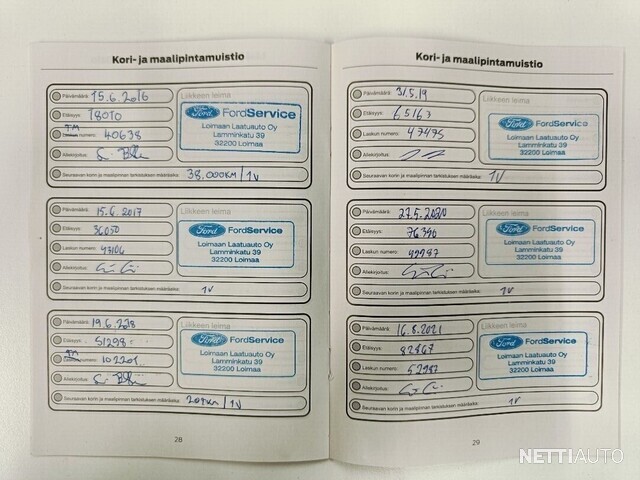 Kori- ja maalipintamuistio
Päivämäärä: 15.6.2016
Etäisyys: 18070
TM numero: 40638
Allekirjoitus:
Liikkeen leima
Ford FordService
Loimaan Laatuauto Oy
Lamminkatu 39
32200 Loimaa
Seuraavan korin ja maalipinnan tarkistuksen määräaika: 38.000KM / 1V
Päivämäärä: 15.6.2017
Etäisyys: 36050
Laskun numero: 43106
Allekirjoitus:
Liikkeen leima
Ford FordService
Loimaan Laatuauto Oy
Lamminkatu 39
32200 Loimaa
Seuraavan korin ja maalipinnan tarkistuksen määräaika: 1V
Päivämäärä: 19.6.2018
Etäisyys: 51298
TM numero: 102201
Allekirjoitus:
Liikkeen leima
Ford FordService
Loimaan Laatuauto Oy
Lamminkatu 39
32200 Loimaa
Seuraavan korin ja maalipinnan tarkistuksen määräaika: 20TKM / 1V
28
Kori- ja maalipintamuistio
Päivämäärä: 31.5.19
Etäisyys: 65167
Laskun numero: 47475
Allekirjoitus:
Liikkeen leima
Ford FordService
Loimaan Laatuauto Oy
Lamminkatu 39
32200 Loimaa
Seuraavan korin ja maalipinnan tarkistuksen määräaika: 1V
Päivämäärä: 27.5.2020
Etäisyys: 76390
Laskun numero: 49787
Allekirjoitus:
Liikkeen leima
Ford FordService
Loimaan Laatuauto Oy
Lamminkatu 39
32200 Loimaa
Seuraavan korin ja maalipinnan tarkistuksen määräaika: 1V
Päivämäärä: 16.8.2021
Etäisyys: 82867
Laskun numero: 52987
Allekirjoitus:
Liikkeen leima
Ford FordService
Loimaan Laatuauto Oy
Lamminkatu 39
32200 Loimaa
Seuraavan korin ja maalipinnan tarkistuksen määräaika: 1V
29
NETTIAUTO